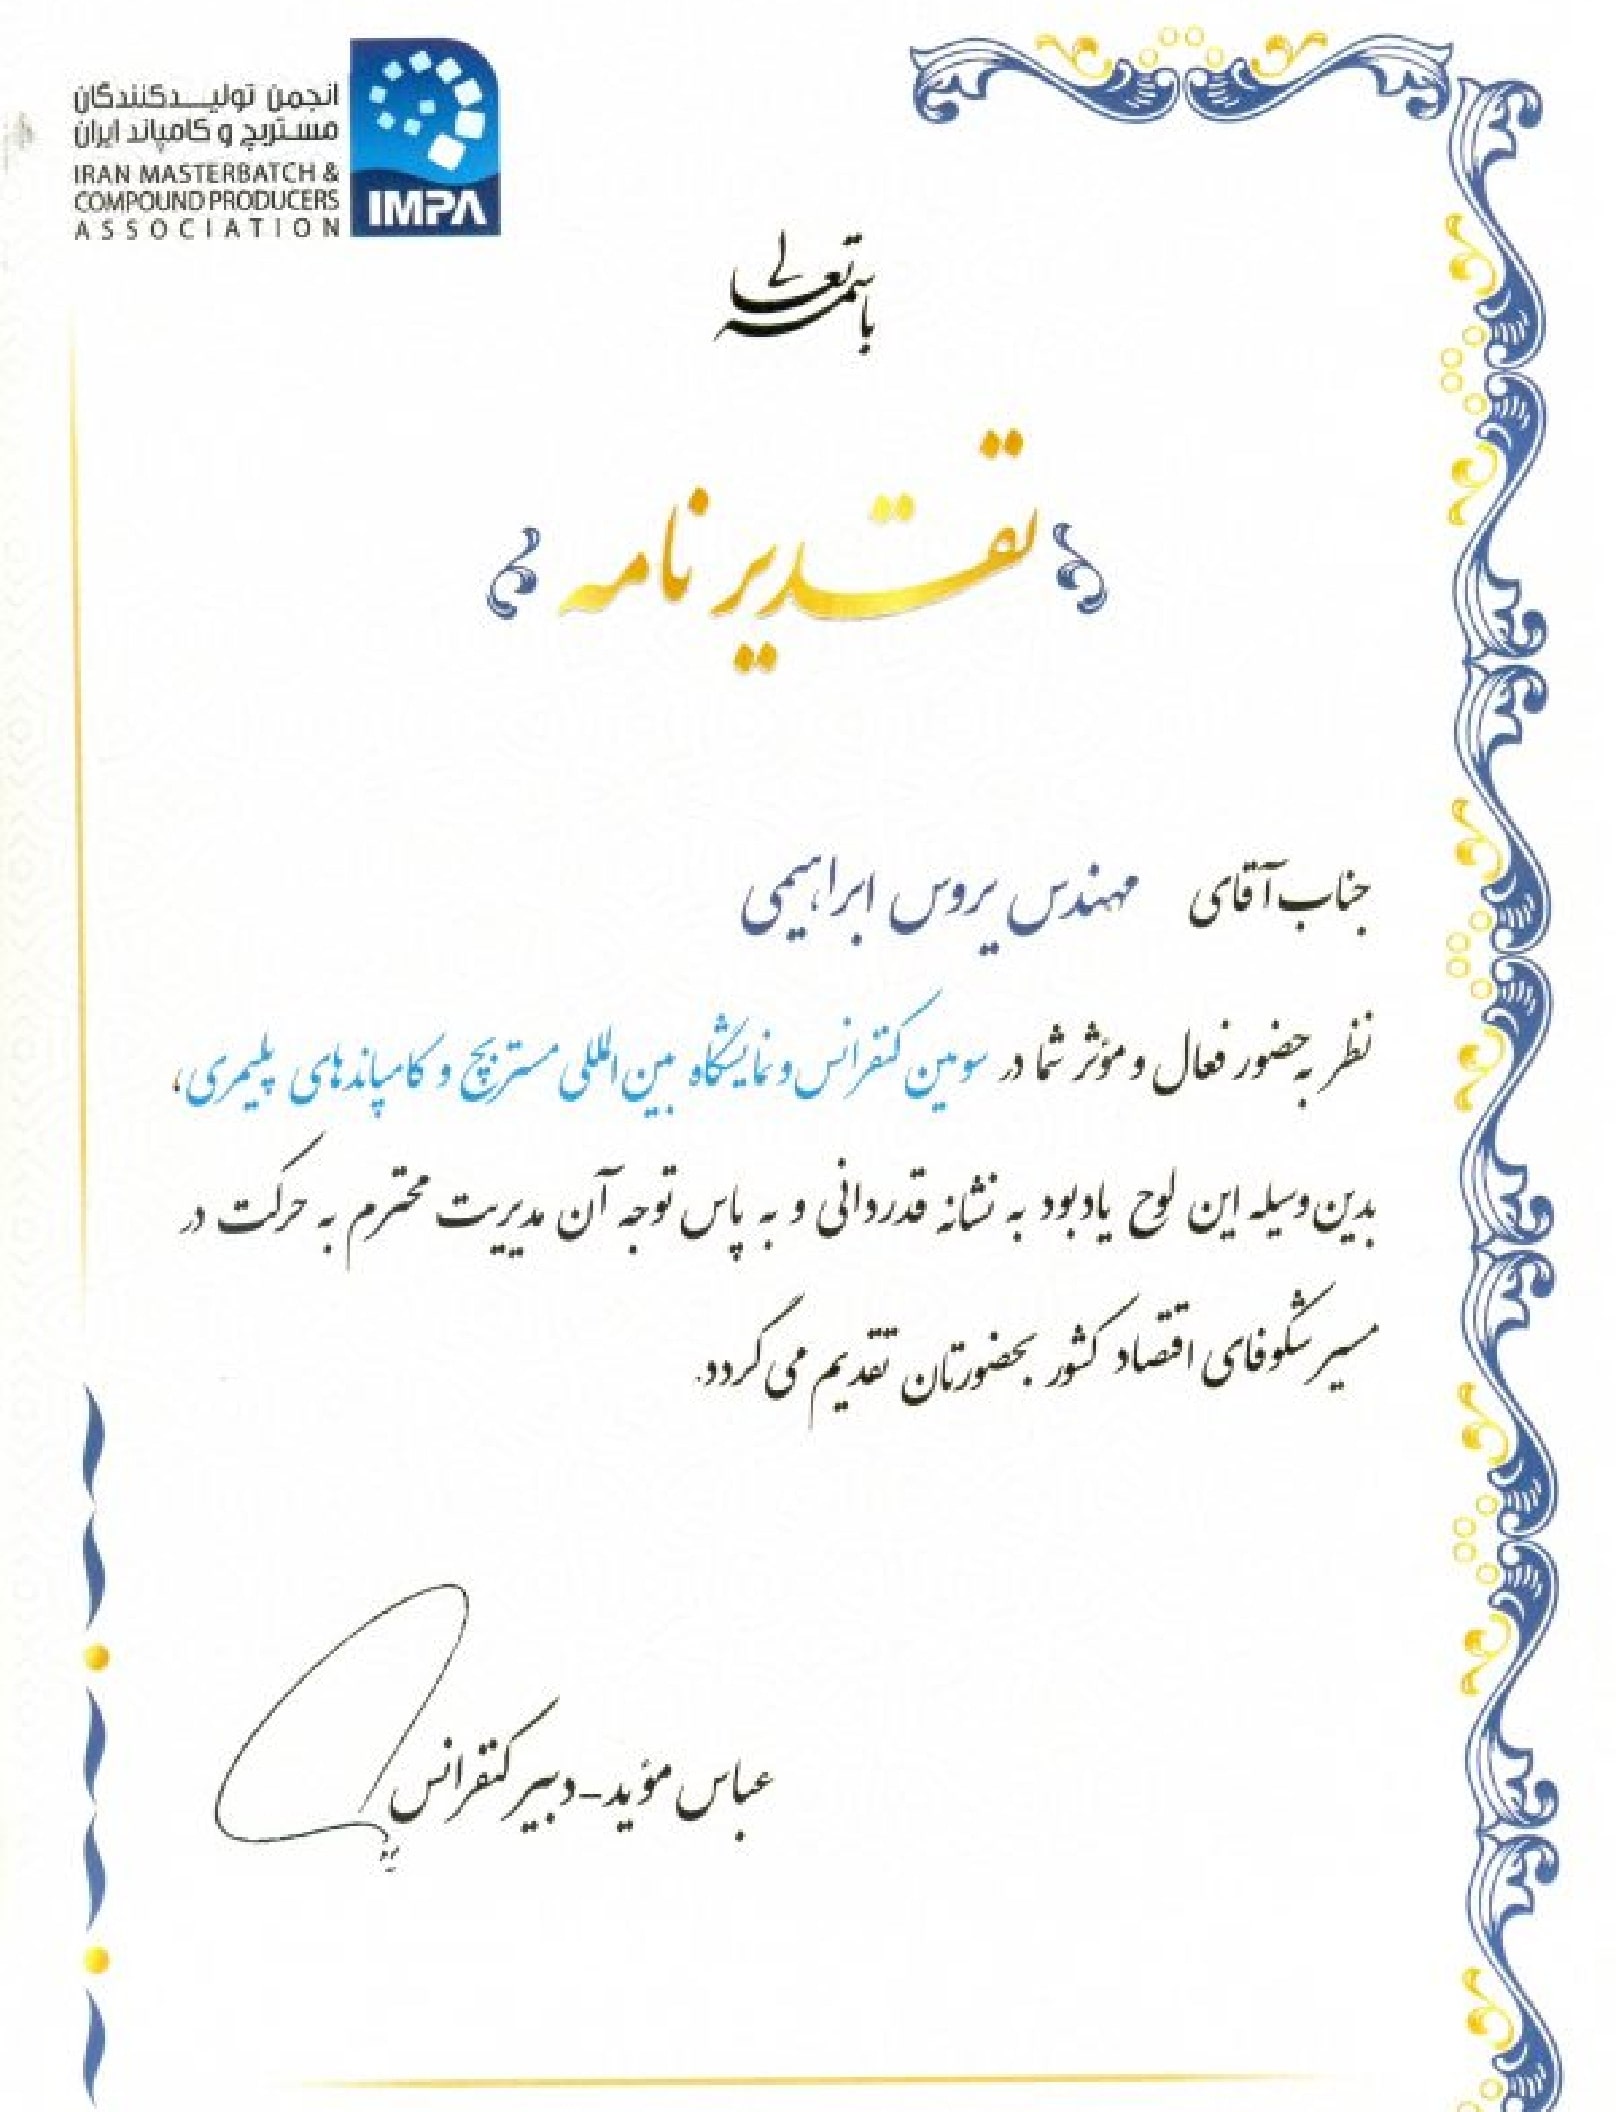 انجمن تولیدکنندگان
مستربچ و کامپاند ایران
IRAN MASTERBATCH &
COMPOUND PRODUCERS
ASSOCIATION
IMPA
باسمه تعالی
تقدیر نامه
جناب آقای مهندس یروس ابراهیمی
نظر به حضور فعال و مؤثر شما در سومین کنفرانس و نمایشگاه بین المللی مستربچ و کامپاندهای پلیمری،
بدین وسیله این لوح یادبود به نشانه قدردانی و به پاس توجه آن مدیریت محترم به حرکت در
مسیر شکوفای اقتصاد کشور بحضورتان تقدیم می گردد.
عباس مؤید-دبیر کنفرانس